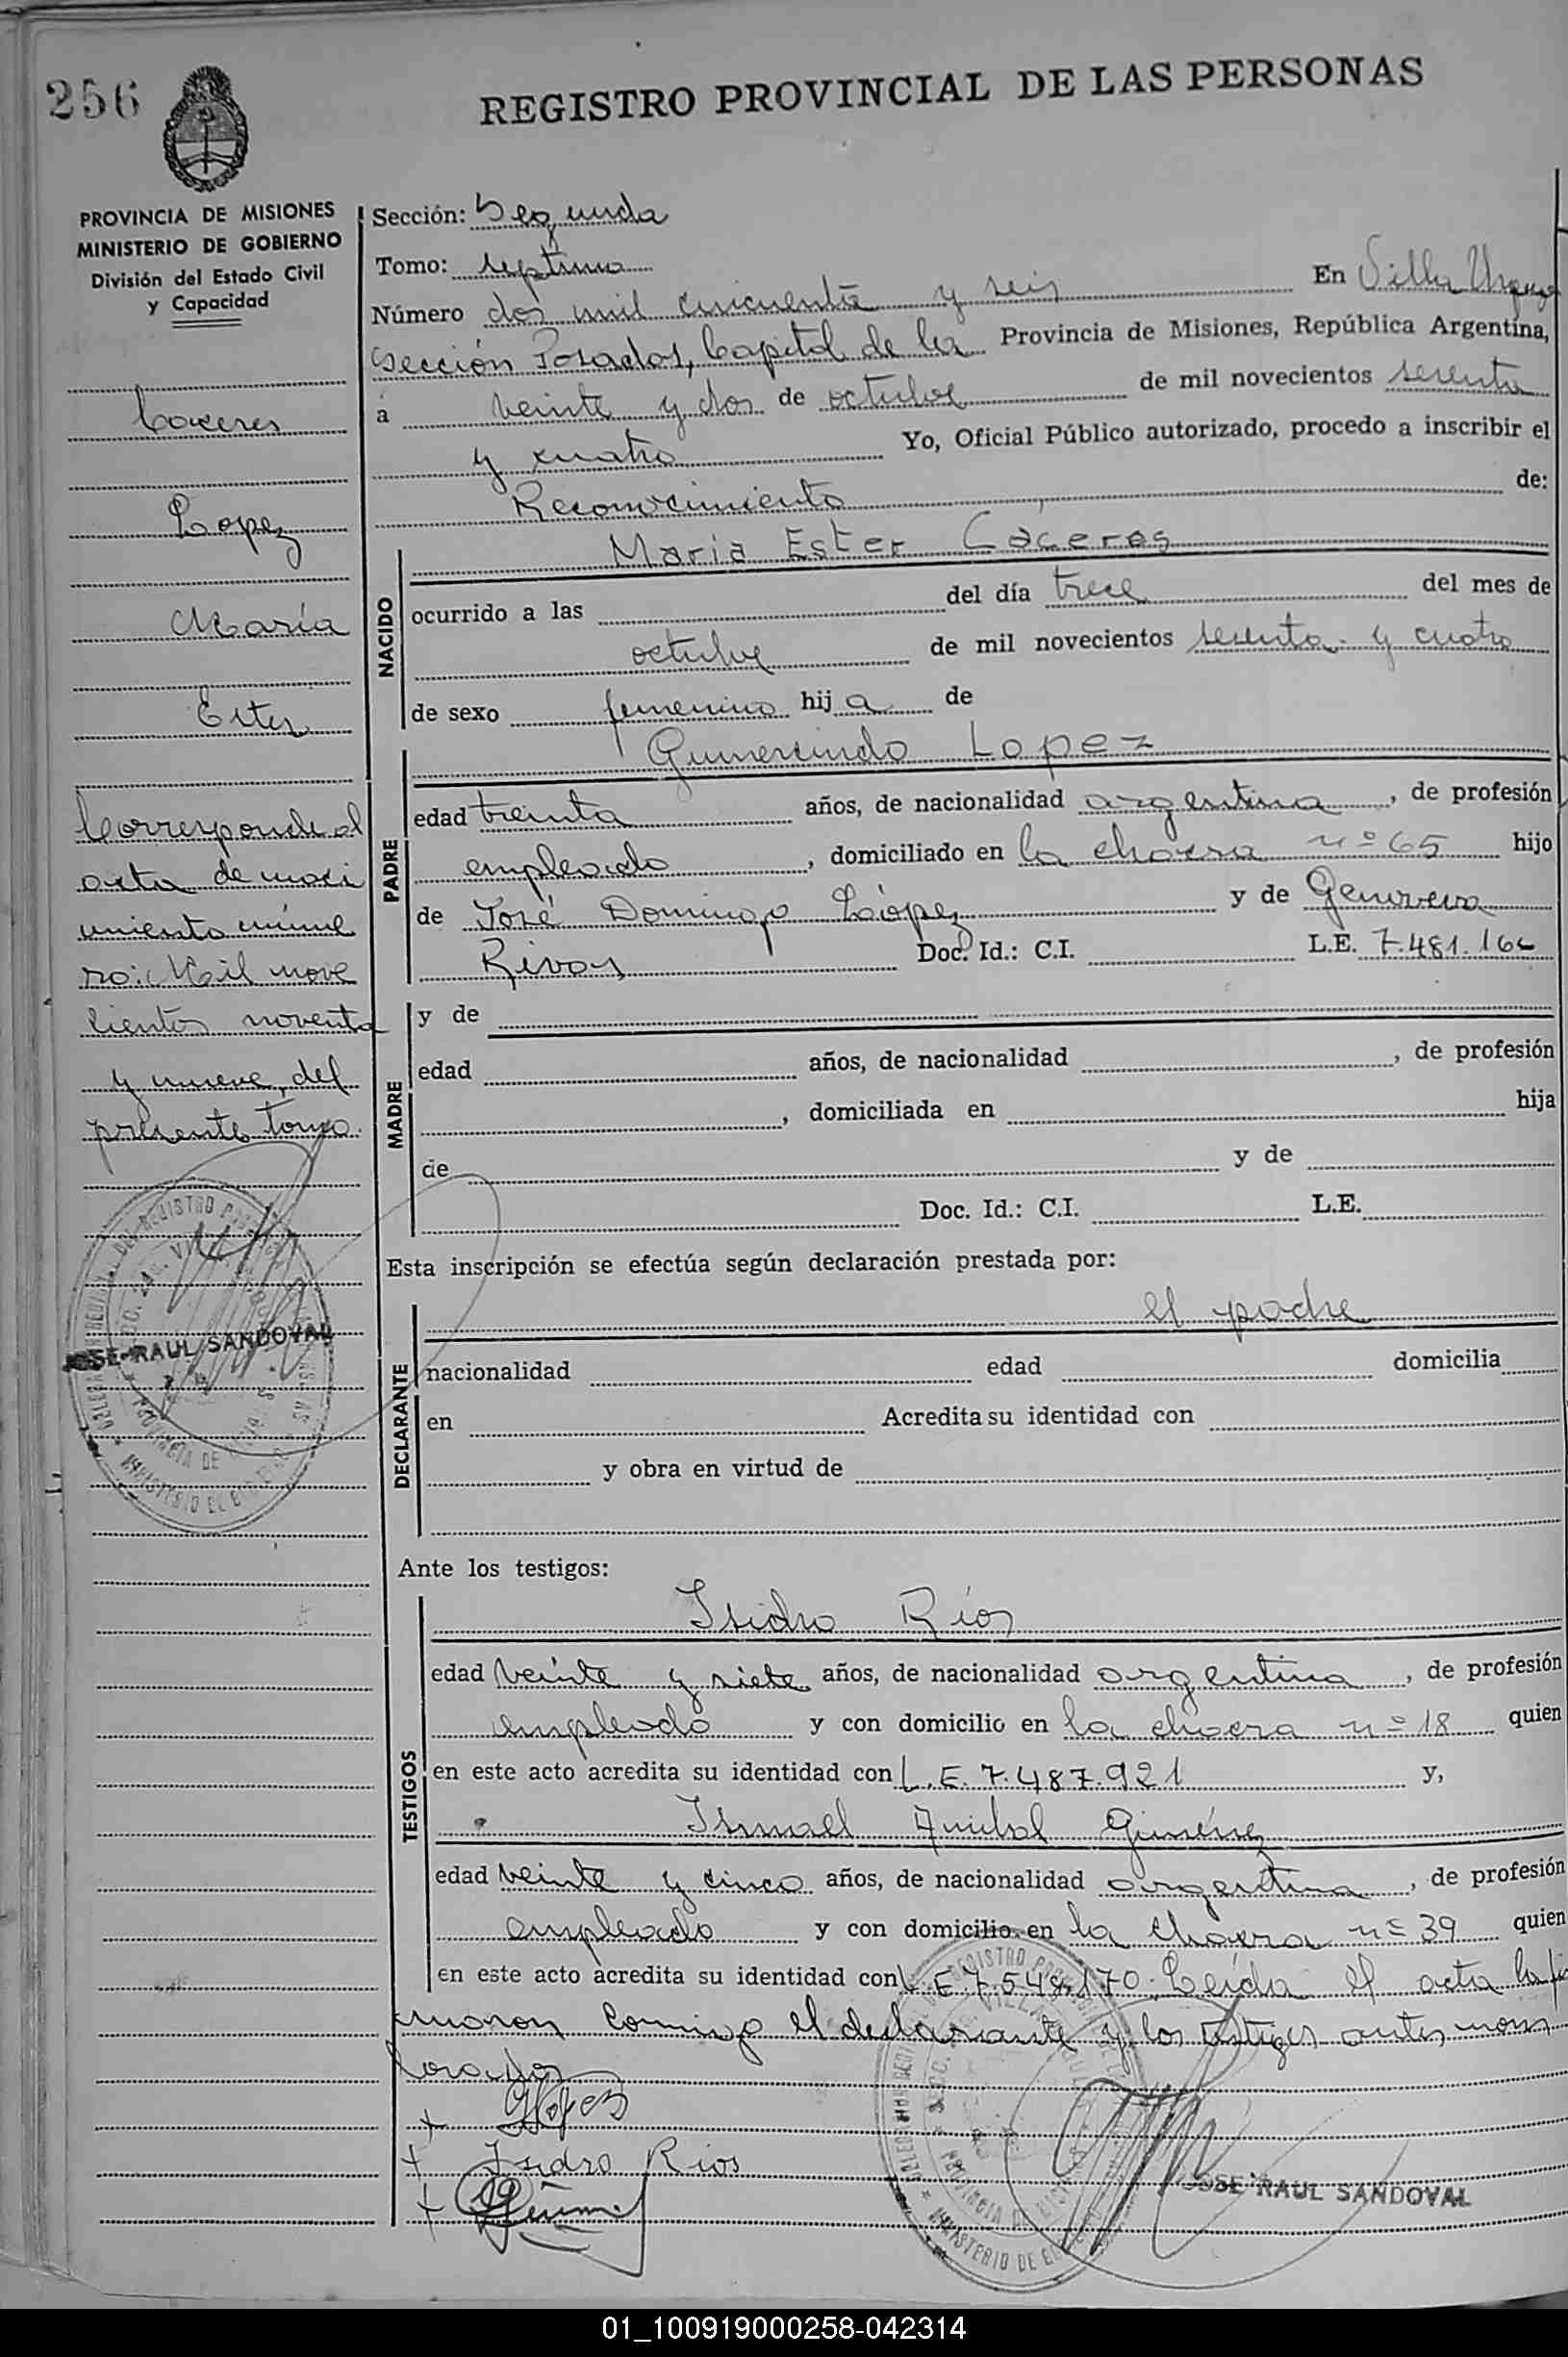 256
REGISTRO PROVINCIAL DE LAS PERSONAS
PROVINCIA DE MISIONES
MINISTERIO DE GOBIERNO
División del Estado Civil
y Capacidad
Caceres
Lopez
María
Ester
Corresponde al
acta de naci
miento núme
ro: Mil nove
cientos noventa
y nueve, del
presente tomo.
JOSE RAUL SANDOVAL
Sección: Segunda
Tomo: septimo
Número dos mil cincuenta y seis En Villa Urquiza
Sección Posadas, Capital de la Provincia de Misiones, República Argentina,
a veinte y dos de octubre de mil novecientos sesenta
y cuatro Yo, Oficial Público autorizado, procedo a inscribir el
Reconocimiento de:
NACIDO
Maria Ester Cáceres
ocurrido a las del día trece del mes de
octubre de mil novecientos sesenta y cuatro
de sexo femenino hij a de
PADRE
Gumersindo Lopez
edad treinta años, de nacionalidad argentina, de profesión
empleado, domiciliado en la chacra nº 65 hijo
de José Domingo López y de Genoveva
Rivas Doc. Id.: C.I. L.E. 7.481.166
MADRE
y de
edad años, de nacionalidad , de profesión
, domiciliada en hija
de y de
Doc. Id.: C.I. L.E.
Esta inscripción se efectúa según declaración prestada por:
DECLARANTE
el padre
nacionalidad edad domicilia
en Acredita su identidad con
y obra en virtud de
Ante los testigos:
TESTIGOS
Isidro Ríos
edad veinte y siete años, de nacionalidad argentina, de profesión
empleado y con domicilio en la chacra nº 18 quien
en este acto acredita su identidad con L.E. 7.487.921 y,
Ismael Anibal Giménez
edad veinte y cinco años, de nacionalidad argentina, de profesión
empleado y con domicilio en la chacra nº 39 quien
en este acto acredita su identidad con L.E. 7.548.170. Leída el acta la fir
maron conmigo el declarante y los testigos antes nom
brados
+ GLopez
+ Isidro Rios
+
JOSE RAUL SANDOVAL
01_100919000258-042314